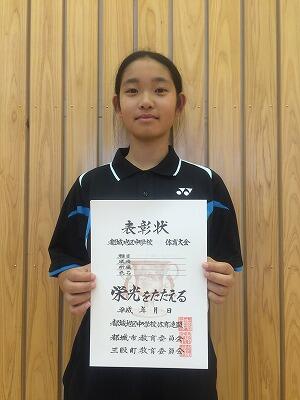 YONEX
表彰状
都城地区中学校 体育大会
種目
成績
所属
氏名
栄光をたたえる
平成 年 月 日
都城地区中学校体育連盟
都城市教育委員会
三股町教育委員会